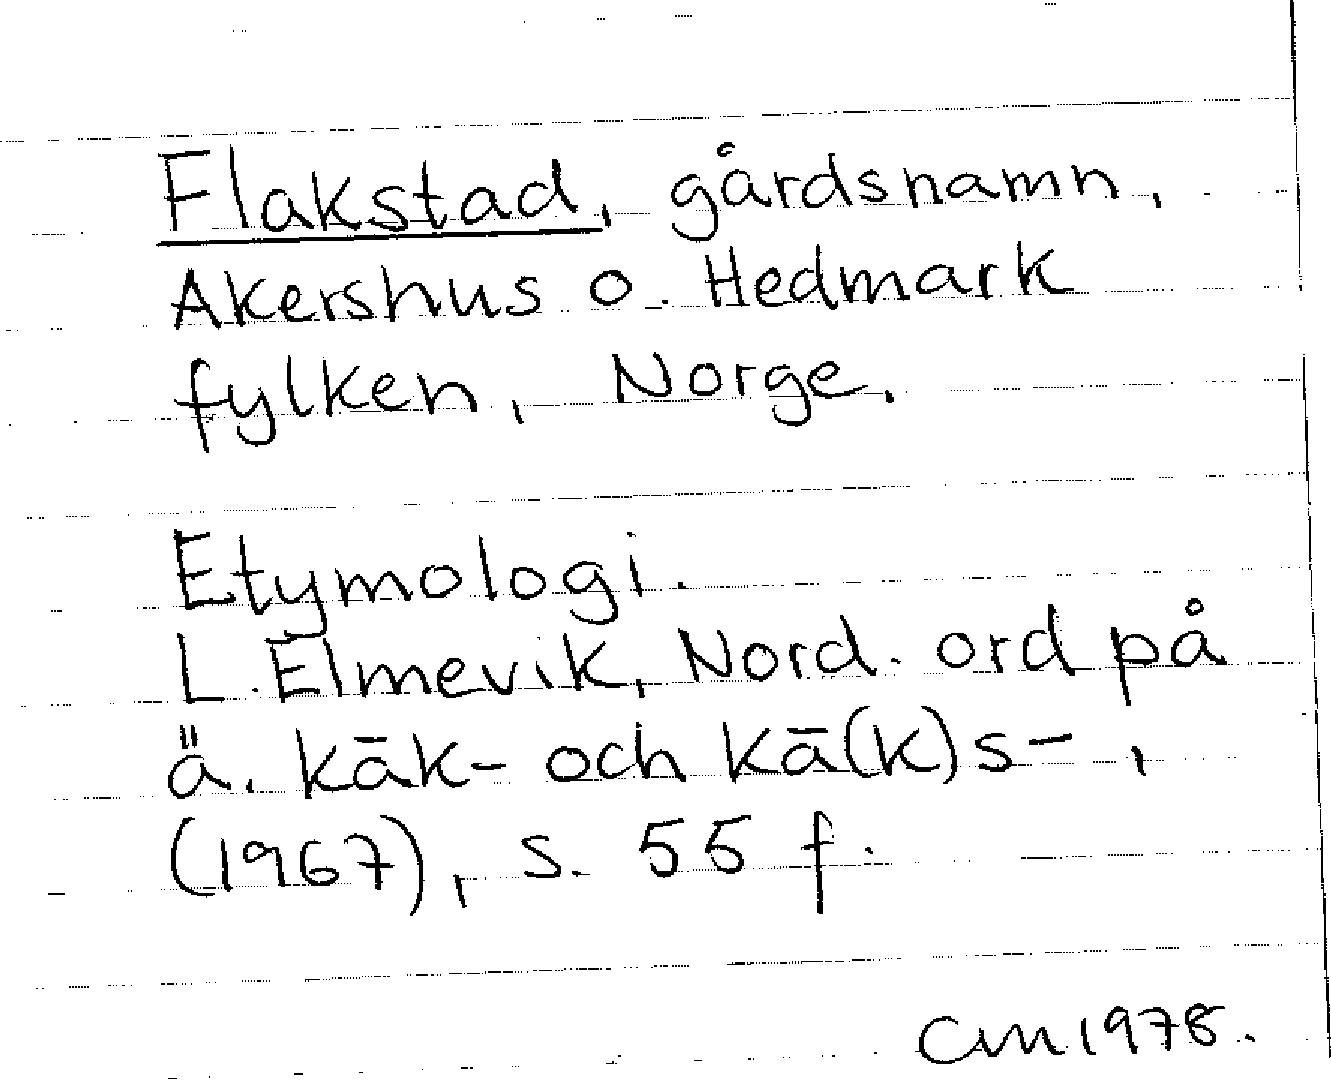 Flakstad, gårdsnamn,
Akershus o. Hedmark
fylken, Norge.
Etymologi.
L. Elmevik, Nord. ord på
ä. kāk- och kā(k)s-,
(1967), s. 55 f.
CM 1978.